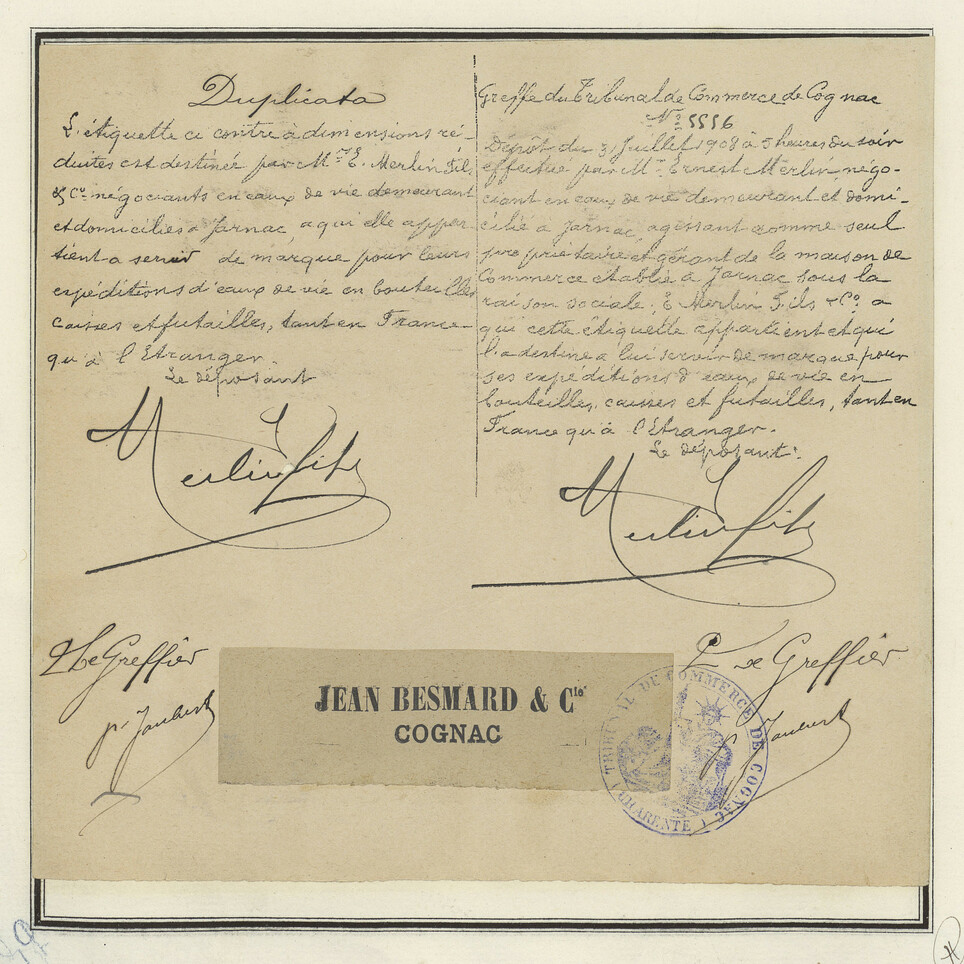 Duplicata
L'étiquette ci contre à dimensions ré-
duites est destinée par Mrs E. Merlin Fils
& Co. négociants en eaux de vie demeurant
et domiciliés à Jarnac, a qui elle appar-
tient a servir de marque pour leurs
expéditions d'eaux de vie en bouteilles
caisses et futailles, tant en France
qu'à l'Etranger.
Le déposant
Merlin Fils
Greffe du Tribunal de Commerce de Cognac
No 5556
Dépôt du 31 Juillet 1908 à 5 heures du soir
effectué par Mr Ernest Merlin négo-
ciant en eaux de vie demeurant et domi-
cilié à Jarnac, agissant comme seul
propriétaire et gérant de la maison de
Commerce établie à Jarnac sous la
raison sociale; E Merlin Fils & Co. a
qui cette étiquette appartient et qui
l'a destine a lui servir de marque pour
ses expéditions d'eaux de vie en
bouteilles, caisses et futailles, tant en
France qu'à l'Etranger.
Le déposant.
Merlin Fils
Le Greffier
Le Greffier
JEAN BESMARD & Cie
COGNAC
TRIBUNAL DE COMMERCE DE COGNAC
(CHARENTE)